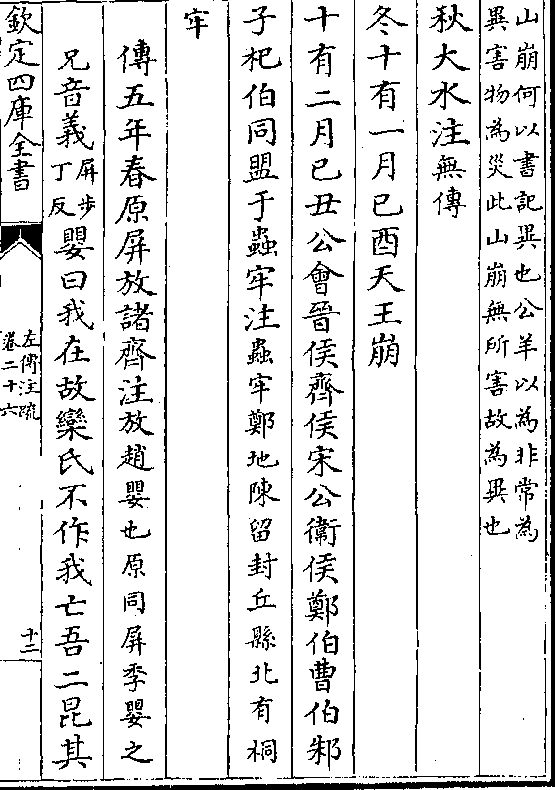 山崩何以書記異也公羊以為非常為
異害物為災此山崩無所害故為異也
秋大水注無傳
冬十有一月己酉天王崩
十有二月己丑公會晉侯齊侯宋公衛侯鄭伯曹伯邾
子杞伯同盟于蟲牢注蟲牢鄭地陳留封丘縣北有桐
牢
傳五年春原屏放諸齊注放趙嬰也原同屏季嬰之
兄音義屏步丁反嬰曰我在故欒氏不作我亡吾二昆其
欽定四庫全書
左傳注疏
卷二十六
十二